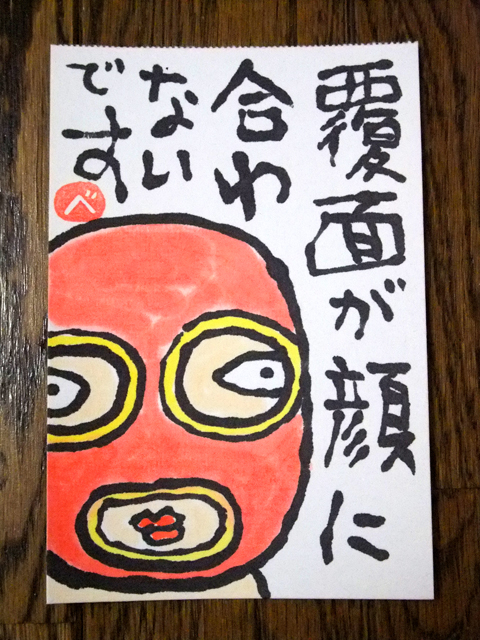 覆面が顔に
合わ
ない
です
べ